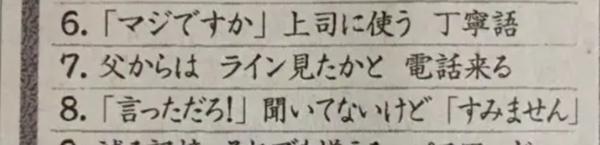 6.「マジですか」上司に使う 丁寧語
7. 父からは ライン見たかと 電話来る
8.「言っただろ!」聞いてないけど「すみません」